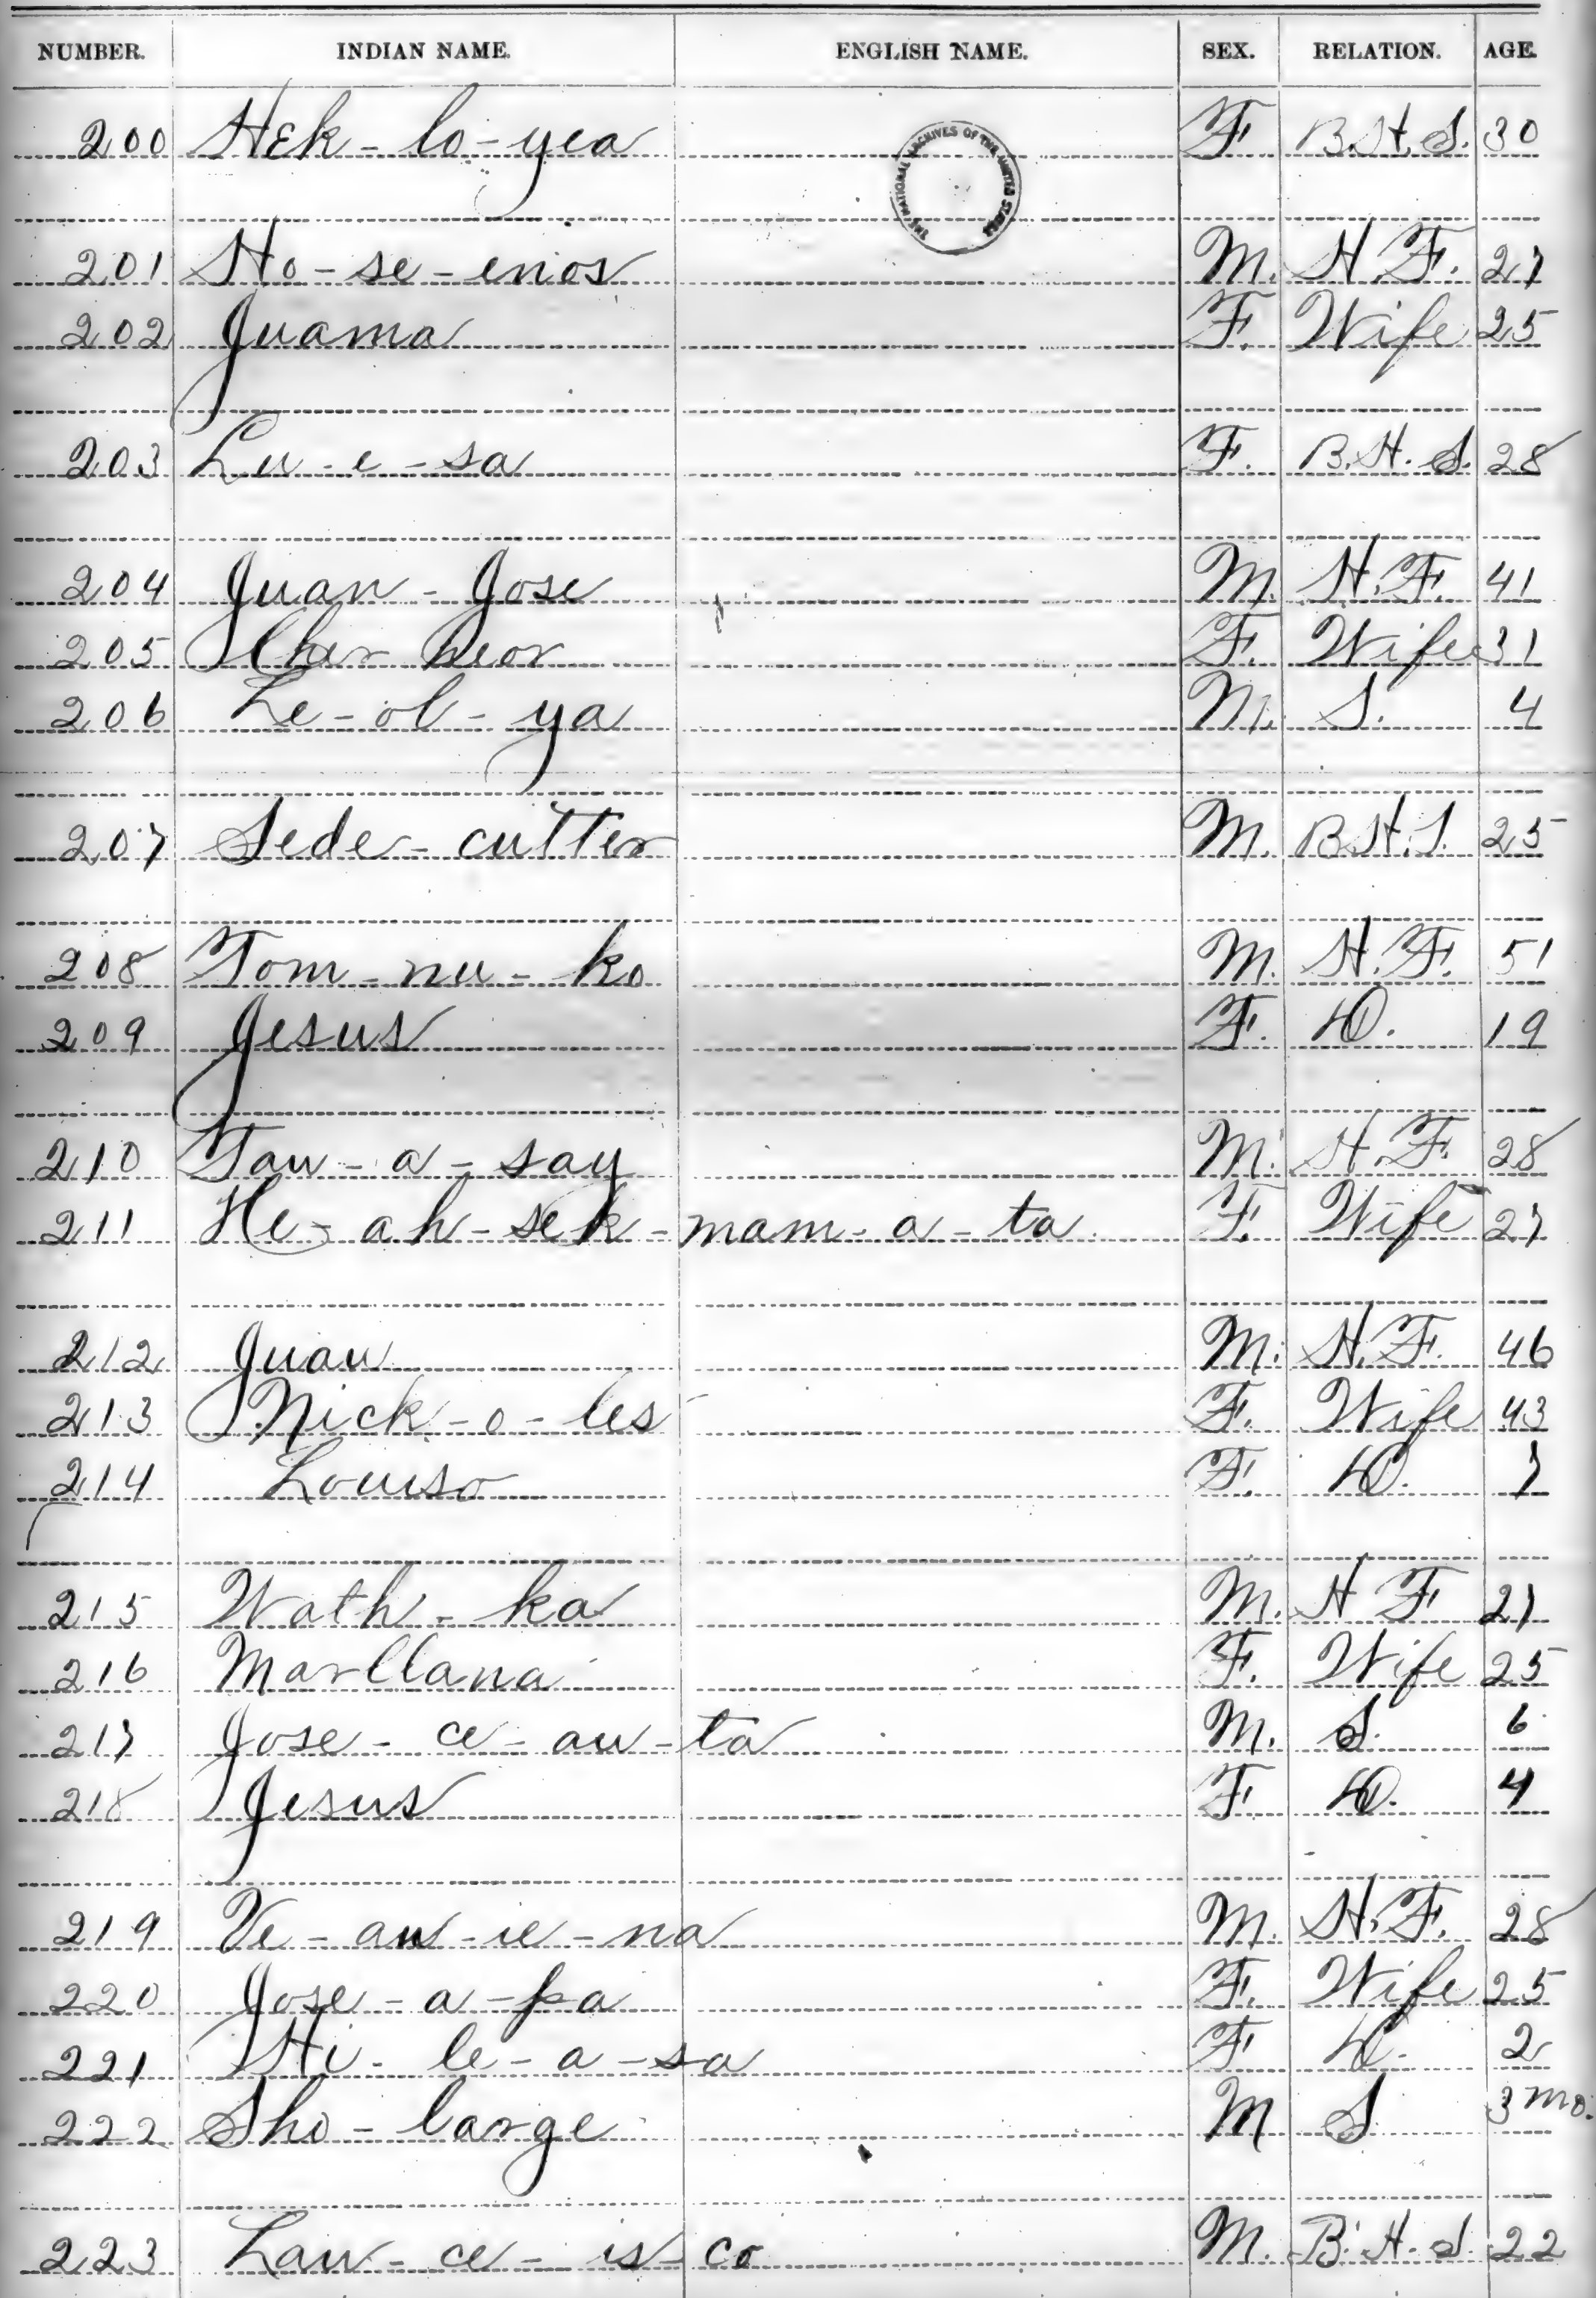 NUMBER. INDIAN NAME. ENGLISH NAME. SEX. RELATION. AGE.
200 Hek-lo-yea F B.H.S. 30
THE NATIONAL ARCHIVES OF THE UNITED STATES
201 Ho-se-enos M. H.F. 27
202 Juama F. Wife 25
203 Lu-e-sa F. B.H.S. 28
204 Juan-Jose M. H.F. 41
205 F. Wife 31
206 Le-ol-ya M. S. 4
207 Sede-cutter M. B.H.S. 25
208 Tom-nu-ko M. H.F. 51
209 Jesus F. D. 19
210 Tau-a-say M. H.F. 28
211 He-ah-sek-mam-a-ta F. Wife 27
212 Juan M. H.F. 46
213 Nick-o-les F. Wife 43
214 Louiso F. D. 7
215 Wath-ka M. H F 27
216 Marllana F. Wife 25
217 Jose-ce-au-ta M. S. 6
218 Jesus F D. 4
219 Ve-aus-ie-na M. H.F. 28
220 Jose-a-pa F. Wife 25
221 Hi-le-a-sa F D. 2
222 Sho-large M S 3 mo.
223 Lau-ce-is-co M. B.H.S. 22